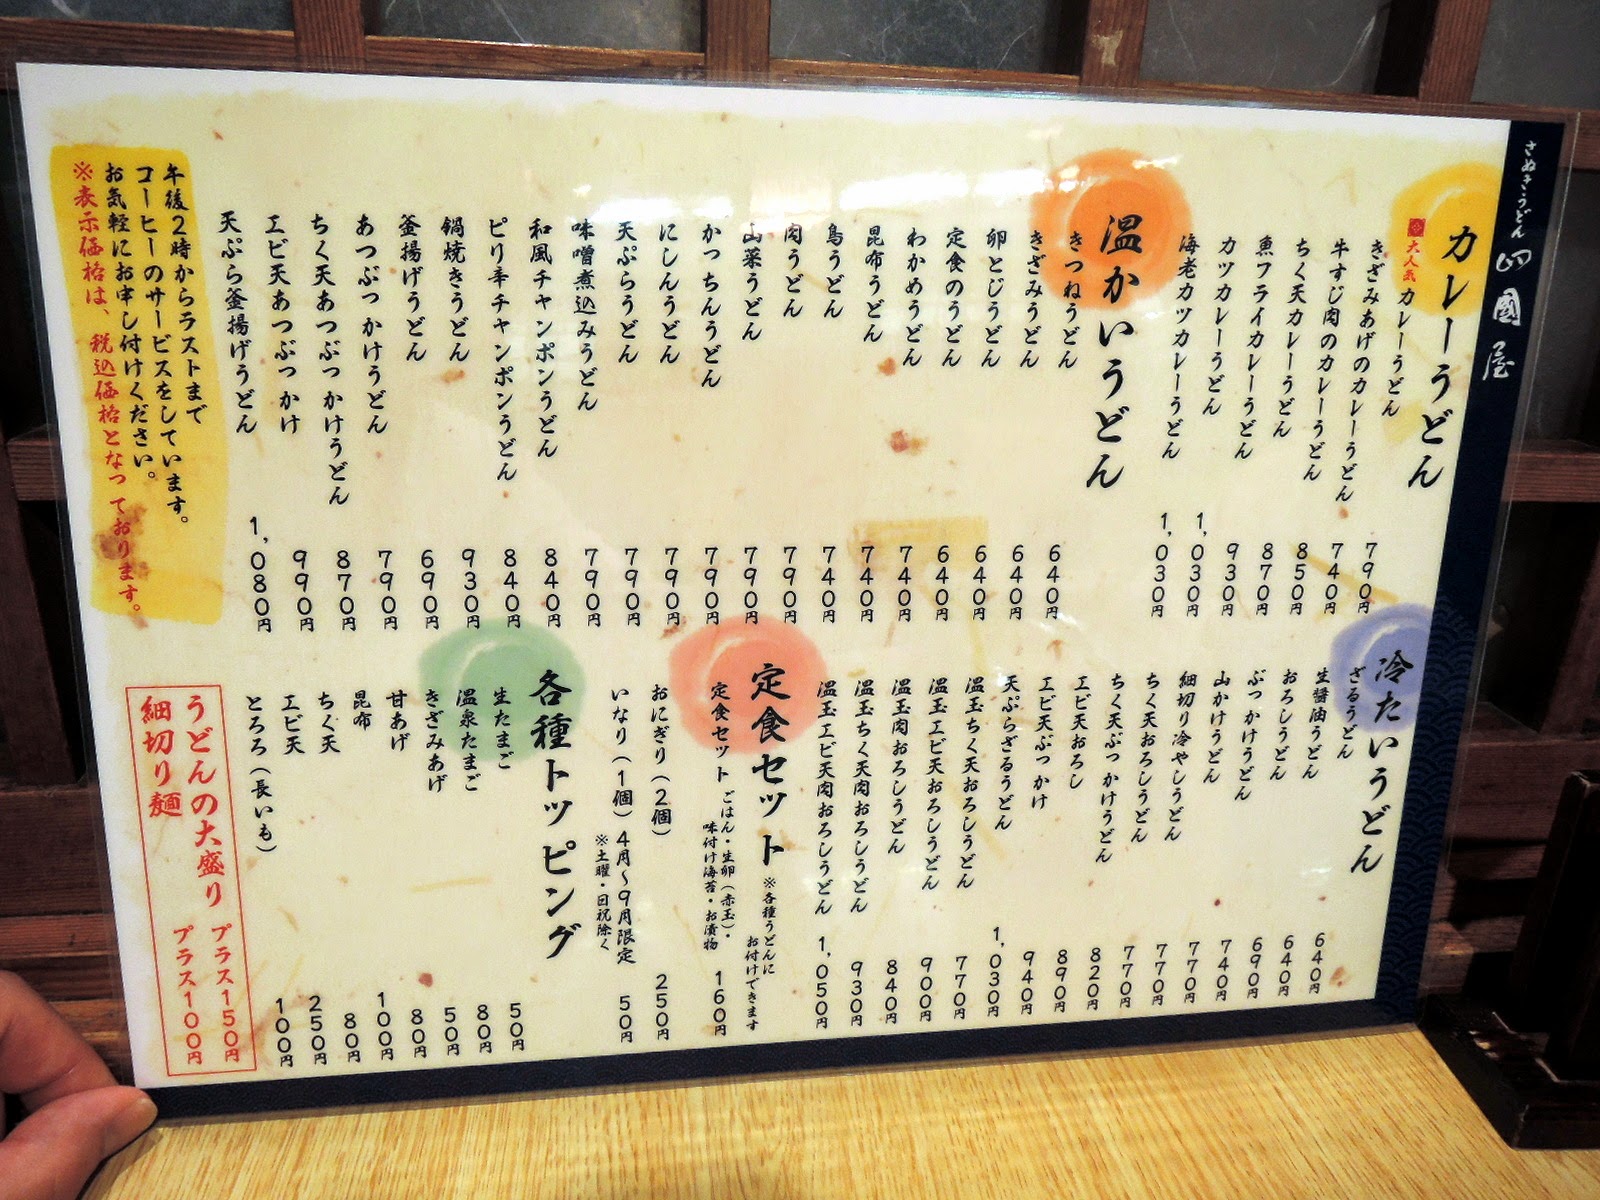 さぬきうどん 四國屋
カレーうどん
大人気 カレーうどん 790円
きざみあげのカレーうどん 740円
牛すじ肉のカレーうどん 850円
ちく天カレーうどん 870円
魚フライカレーうどん 930円
カツカレーうどん 1,030円
海老カツカレーうどん 1,030円
温かいうどん
きつねうどん 640円
きざみうどん 640円
卵とじうどん 640円
定食のうどん 640円
わかめうどん 740円
昆布うどん 740円
鳥うどん 740円
肉うどん 790円
山菜うどん 790円
かっちんうどん 790円
にしんうどん 790円
天ぷらうどん 790円
味噌煮込みうどん 790円
和風チャンポンうどん 840円
ピリ辛チャンポンうどん 840円
鍋焼きうどん 930円
釜揚げうどん 690円
あつぶっかけうどん 790円
ちく天あつぶっかけうどん 870円
エビ天あつぶっかけ 990円
天ぷら釜揚げうどん 1,080円
午後2時からラストまで
コーヒーのサービスをしています。
お気軽にお申し付けください。
※表示価格は、税込価格となっております。
冷たいうどん
ざるうどん 640円
生醤油うどん 640円
おろしうどん 690円
ぶっかけうどん 740円
山かけうどん 770円
細切り冷やしうどん 770円
ちく天おろしうどん 770円
ちく天ぶっかけうどん 820円
エビ天おろし 890円
エビ天ぶっかけ 940円
天ぷらざるうどん 1,030円
温玉ちく天おろしうどん 770円
温玉エビ天おろしうどん 900円
温玉肉おろしうどん 840円
温玉ちく天肉おろしうどん 930円
温玉エビ天肉おろしうどん 1,050円
定食セット ※各種うどんに
お付けできます
定食セット ごはん・生卵(赤玉)・
味付け海苔・お漬物 160円
おにぎり(2個) 250円
いなり(1個) 4月〜9月限定 50円
※土曜・日祝除く
各種トッピング
生たまご 50円
温泉たまご 80円
きざみあげ 50円
甘あげ 80円
昆布 100円
ちく天 80円
エビ天 250円
とろろ(長いも) 100円
うどんの大盛り プラス150円
細切り麺 プラス100円